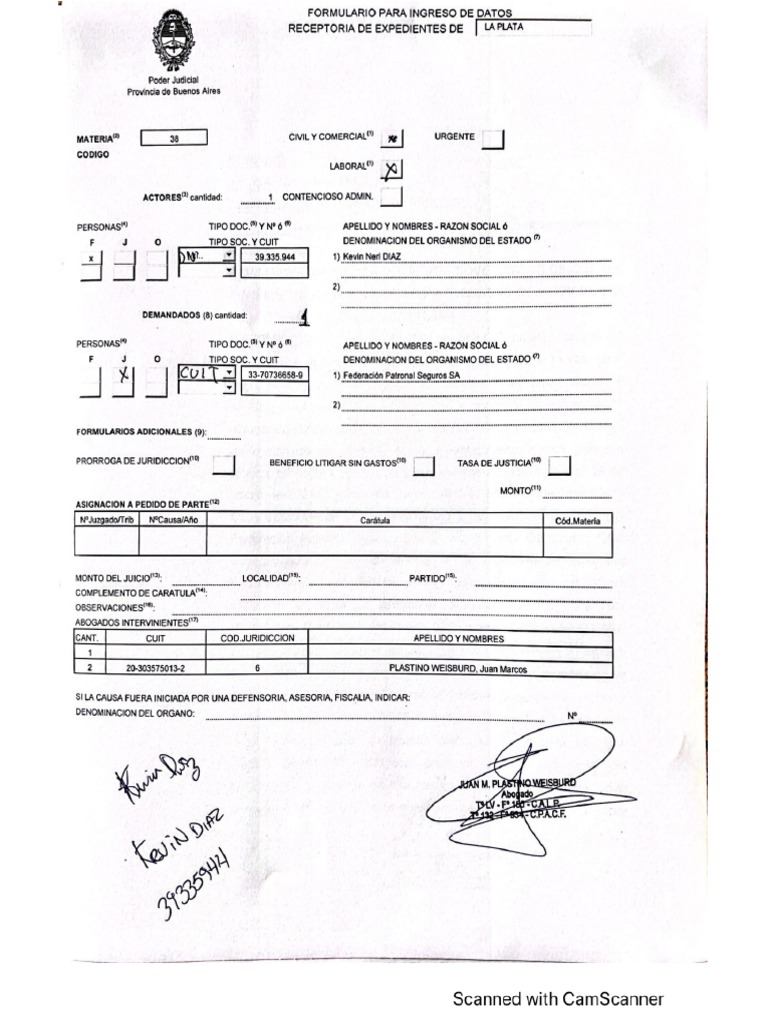 FORMULARIO PARA INGRESO DE DATOS
RECEPTORIA DE EXPEDIENTES DE LA PLATA
Poder Judicial
Provincia de Buenos Aires
MATERIA(2) 38 CIVIL Y COMERCIAL(1) URGENTE
CODIGO
LABORAL(1) X
ACTORES(3) cantidad: 1 CONTENCIOSO ADMIN.
PERSONAS(4) TIPO DOC.(5) Y Nº ó (6) APELLIDO Y NOMBRES - RAZON SOCIAL ó
F J O TIPO SOC. Y CUIT DENOMINACION DEL ORGANISMO DEL ESTADO (7)
x 39.335.944 1) Kevin Neri DIAZ
2)
DEMANDADOS (8) cantidad: 1
PERSONAS(4) TIPO DOC.(5) Y Nº ó (6) APELLIDO Y NOMBRES - RAZON SOCIAL ó
F J O TIPO SOC. Y CUIT DENOMINACION DEL ORGANISMO DEL ESTADO (7)
X CUIT 33-70736658-9 1) Federación Patronal Seguros SA
2)
FORMULARIOS ADICIONALES (9):
PRORROGA DE JURIDICCION(10) BENEFICIO LITIGAR SIN GASTOS(10) TASA DE JUSTICIA(10)
MONTO(11)
ASIGNACION A PEDIDO DE PARTE(12)
NºJuzgado/Trib NºCausa/Año Carátula Cód.Materia
MONTO DEL JUICIO(13): LOCALIDAD(15): PARTIDO(15):
COMPLEMENTO DE CARATULA(14):
OBSERVACIONES(16):
ABOGADOS INTERVINIENTES(17)
CANT. CUIT COD.JURIDICCION APELLIDO Y NOMBRES
1
2 20-303575013-2 6 PLASTINO WEISBURD, Juan Marcos
SI LA CAUSA FUERA INICIADA POR UNA DEFENSORIA, ASESORIA, FISCALIA, INDICAR:
DENOMINACION DEL ORGANO: Nº
Kevin Diaz
KEVIN DIAZ
39335944
JUAN M. PLASTINO WEISBURD
Abogado
Tº LV - Fº 180 - C.A.L.P.
Tº 132 - Fº 934 - C.P.A.C.F.
Scanned with CamScanner